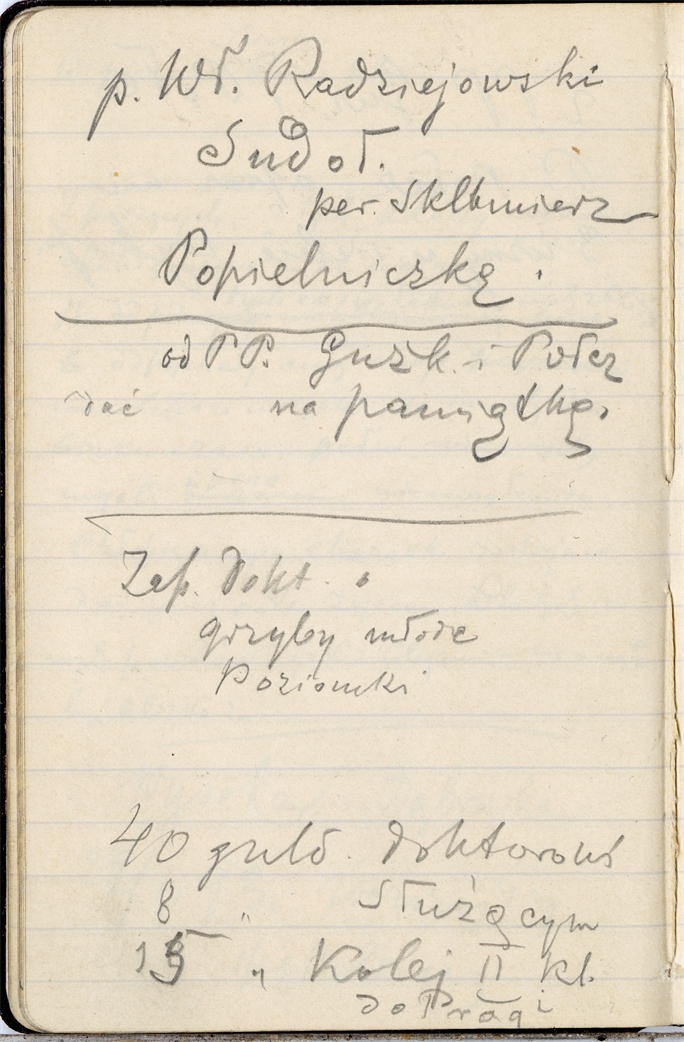 p. Wł. Radziejowski
Sudoł.
per. Sklbmierz
Popielniczkę.
od PP. Guzk. i Połcz
dać na pamiątkę.
Zap. Dokt.
grzyby młode
Poziomki
40 guld. doktorowi
8 " Służącym
15 " Kolej II kl.
do Pragi